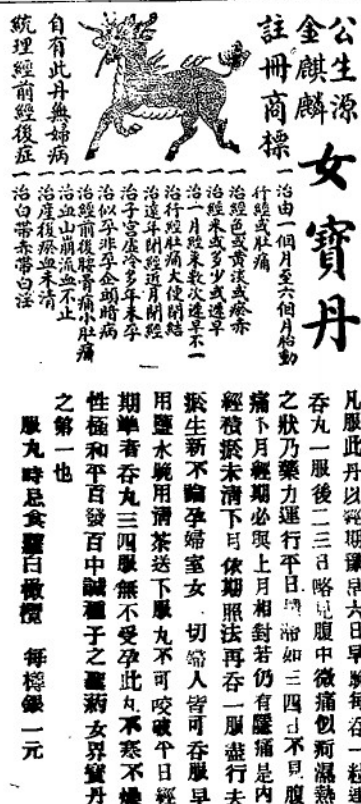 公生源
金麒麟
註冊商標
女寶丹
自有此丹無婦病
統理經前經後症
一治由一個月至六個月胎動
行經或肚痛
一治經色或黃淡或瘀赤
一治經來或多少或遲早
一治一月經來數次遲早不一
一治行經肚痛大便閉結
一治遠年閉經近月閉經
一治子宮虛冷多年未孕
一治似孕非孕企頭暗病
一治經前後腰骨痛小肚痛
一治血山崩流血不止
一治產後瘀血未清
一治白帶赤帶白淫
凡服此丹以經期前早六日早晚每吞一粒連
吞丸一服後二三日略見腹中微痛似痾濕熱
之狀乃藥力運行平日瘀滯如三四日不見腹
痛下月經期必與上月相對若仍有隱痛是內
經積瘀未清下月依期照法再吞一服盡行去
瘀生新不論孕婦室女一切婦人皆可吞服早
用鹽水晚用清茶送下服丸不可咬破平日經
期準者吞丸三四服無不受孕此丸不寒不燥
性極和平百發百中誠種子之聖藥女界寶丹
之第一也
服丸時忌食蘿白橄欖 每樽銀一元